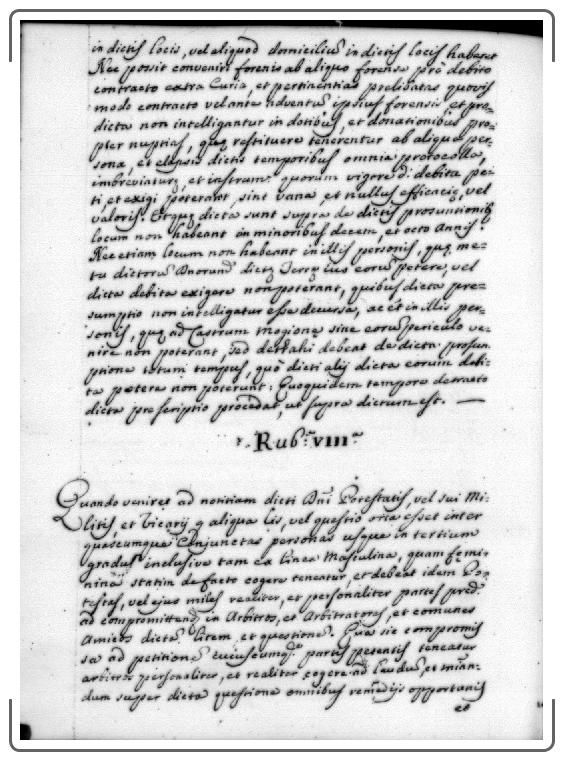 in dictis locis, vel aliquod domiciliũ in dictis locis haberet
Nec possit conveniri forensis ab aliquo forense prõ debito
contracto extra Curia, et pertinentias prelibatas quovis
modo contracto vel ante adventũ ipsius forensis et pre-
dicta non intelligantur in dotibus, et donationibus pro-
pter nuptias, quę restituere tenerentur ab aliqua per-
sona, et elapsis dictis temporibus omnia protocolla,
imbreviaturę, et instrum: quorum vigore dĩ debita pe-
ti, et exigi poterant, sint vana, et nullius efficacię, vel
valoris. Et quę dicta sunt supra de dictis prosuntionib
locum non habeant in minoribus decem, et octo Annis.
Nec etiam locum non habeant in illis personis, quę me-
tu dictorũ Dnorum dictę Terrę ius eorũ petere, vel
dicta debita exigere non poterant, quibus dicta pre-
sumptio non intelligatur esse decursa, ac et in illis per-
sonis, quę ad Castrum Mogione sine eorũ periculo ve-
nire non poterant, sed detrahi debeat de dicta prosun-
ptione totum tempus, quo dicti alij dicta eorum debi-
ta petere non poterunt: Quoquidem tempore detracto
dicta prescriptio procedat, ut supra dictum est.
Rub.ᶜᵃ VIII.ᵃ
Quando veniret ad notitiam dicti Dñi Potestatis, vel sui Mi-
litis, et Vicarij q aliqua lis, vel questio oria esset inter
quascumque Conjunctas personas usque in tertium
gradũ inclusive tam ex linea Masculina, quam fęmi-
nina statim de facto cogere teneatur, et debeat idem Pot-
testas, vel ejus miles realiter, et personaliter partes pred.
ad compromittend in Arbitros, et Arbitratores, et comunes
Amicos dictã litem et questionẽ. Qua sic compromis
sa ad petitionẽ cuiuscumq; partis petentis teneatur
arbitros personaliter, et realiter cogere ad Laudũ, et
dum super dicta questione omnibus remedijs opportunis
et